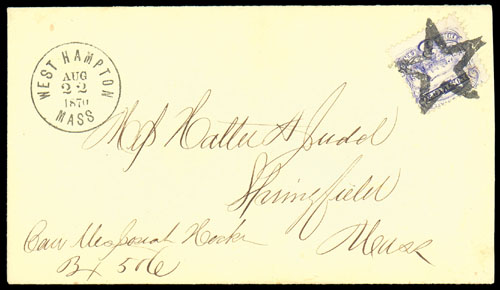 WEST HAMPTON
AUG
22
1870
MASS
Miss Hattie A Judd
Springfield
Mass
Care Mrs Josiah Hooker
Bx 506